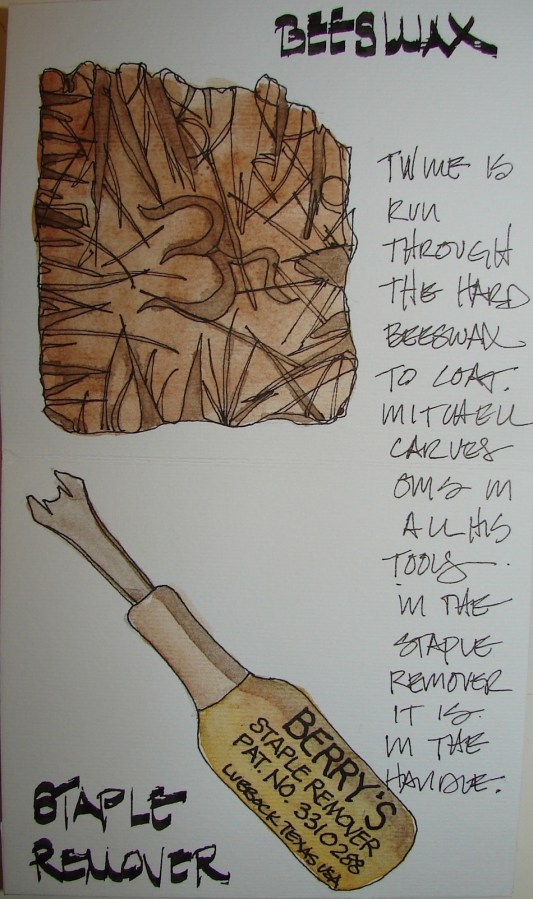 BEESWAX
TWINE IS
RUN
THROUGH
THE HARD
BEESWAX
TO COAT.
MITCHELL
CARVES
OMS IN
ALL HIS
TOOLS.
IN THE
STAPLE
REMOVER
IT IS
IN THE
HANDLE.
BERRY'S
STAPLE REMOVER
PAT. NO. 3310288
TEXAS USA
STAPLE
REMOVER